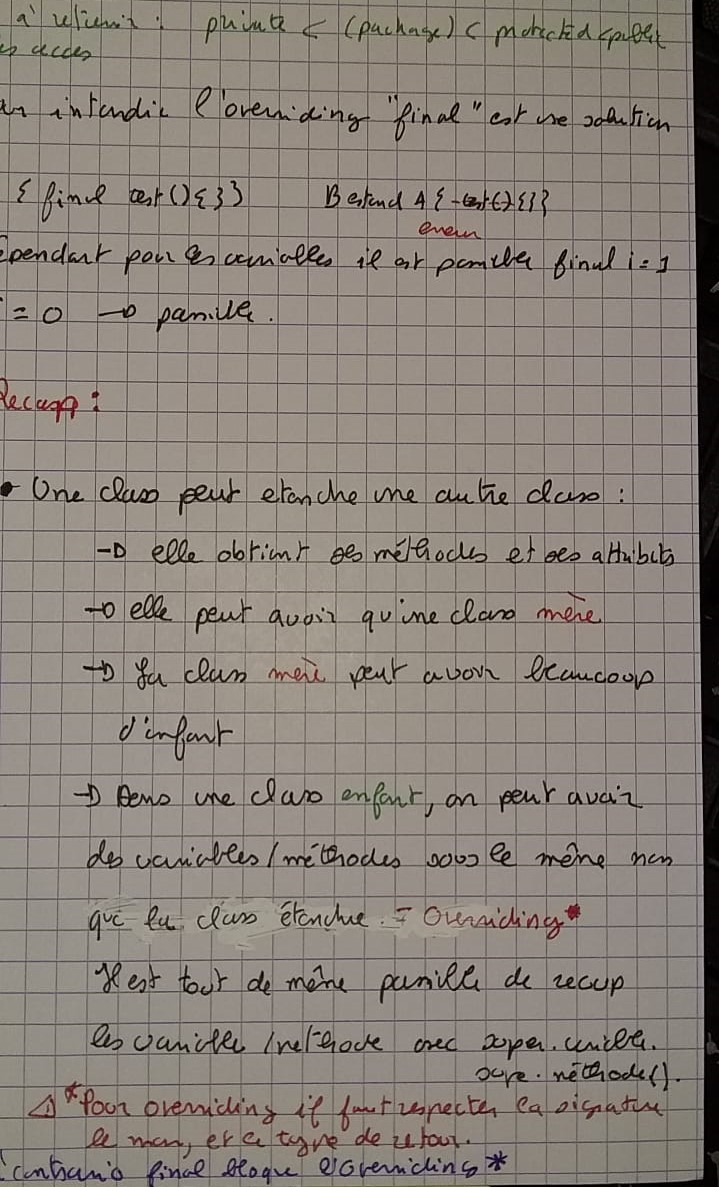 à retenir : private < (package) < protected < public
es acces
interdire l'overriding "final" est une solution
{ final test(){}} B extend A { test(){}}
erreur
pendant pour les variables il est possible final i = 1
= 0 → possible.
Recapp :
• Une class peut etendre une autre class :
→ elle obtient ses méthodes et ses attributs
→ elle peut avoir qu'une class mère
→ La class mère peut avoir beaucoup
d'enfant
→ Dans une class enfant, on peut avoir
des variables / méthodes sous le même nom
que la class étendue. = Overriding*
Il est tout de même possible de recup
les variables / méthode avec super.variable.
super.méthode().
⚠ *Pour overriding il faut respecter la signature
le nom, et le type de retour.
contrario final bloque l'Overriding*